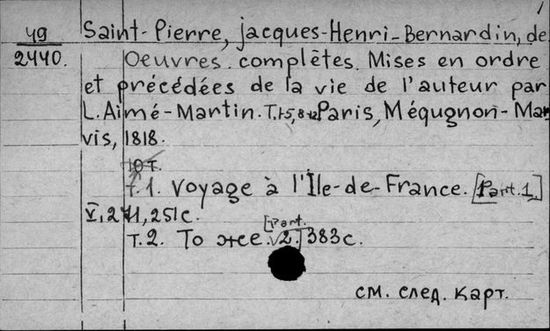 1
49
2440.
Saint-Pierre, jacques-Henri-Bernardin, de
Oeuvres complètes. Mises en ordre
et précédées de la vie de l'auteur par
L. Aimé-Martin. T. 1-5, 8-12 Paris, Méqugnon-Mar
vis, 1818.
10 т.
т. 1. Voyage à l'Ile-de-France. [Part. 1,]
V, 271, 251 с.
[Part.
т. 2. То же. 2.] 383 с.
см. след. карт.